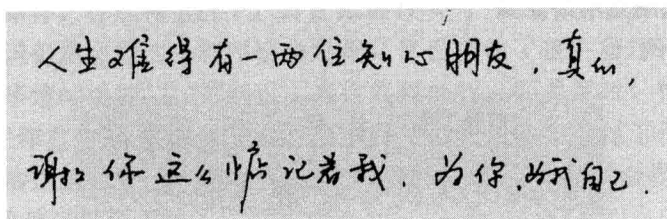 人生难得有一两位知心朋友，真的，
谢谢你这么惦记着我．为你，为我自己．